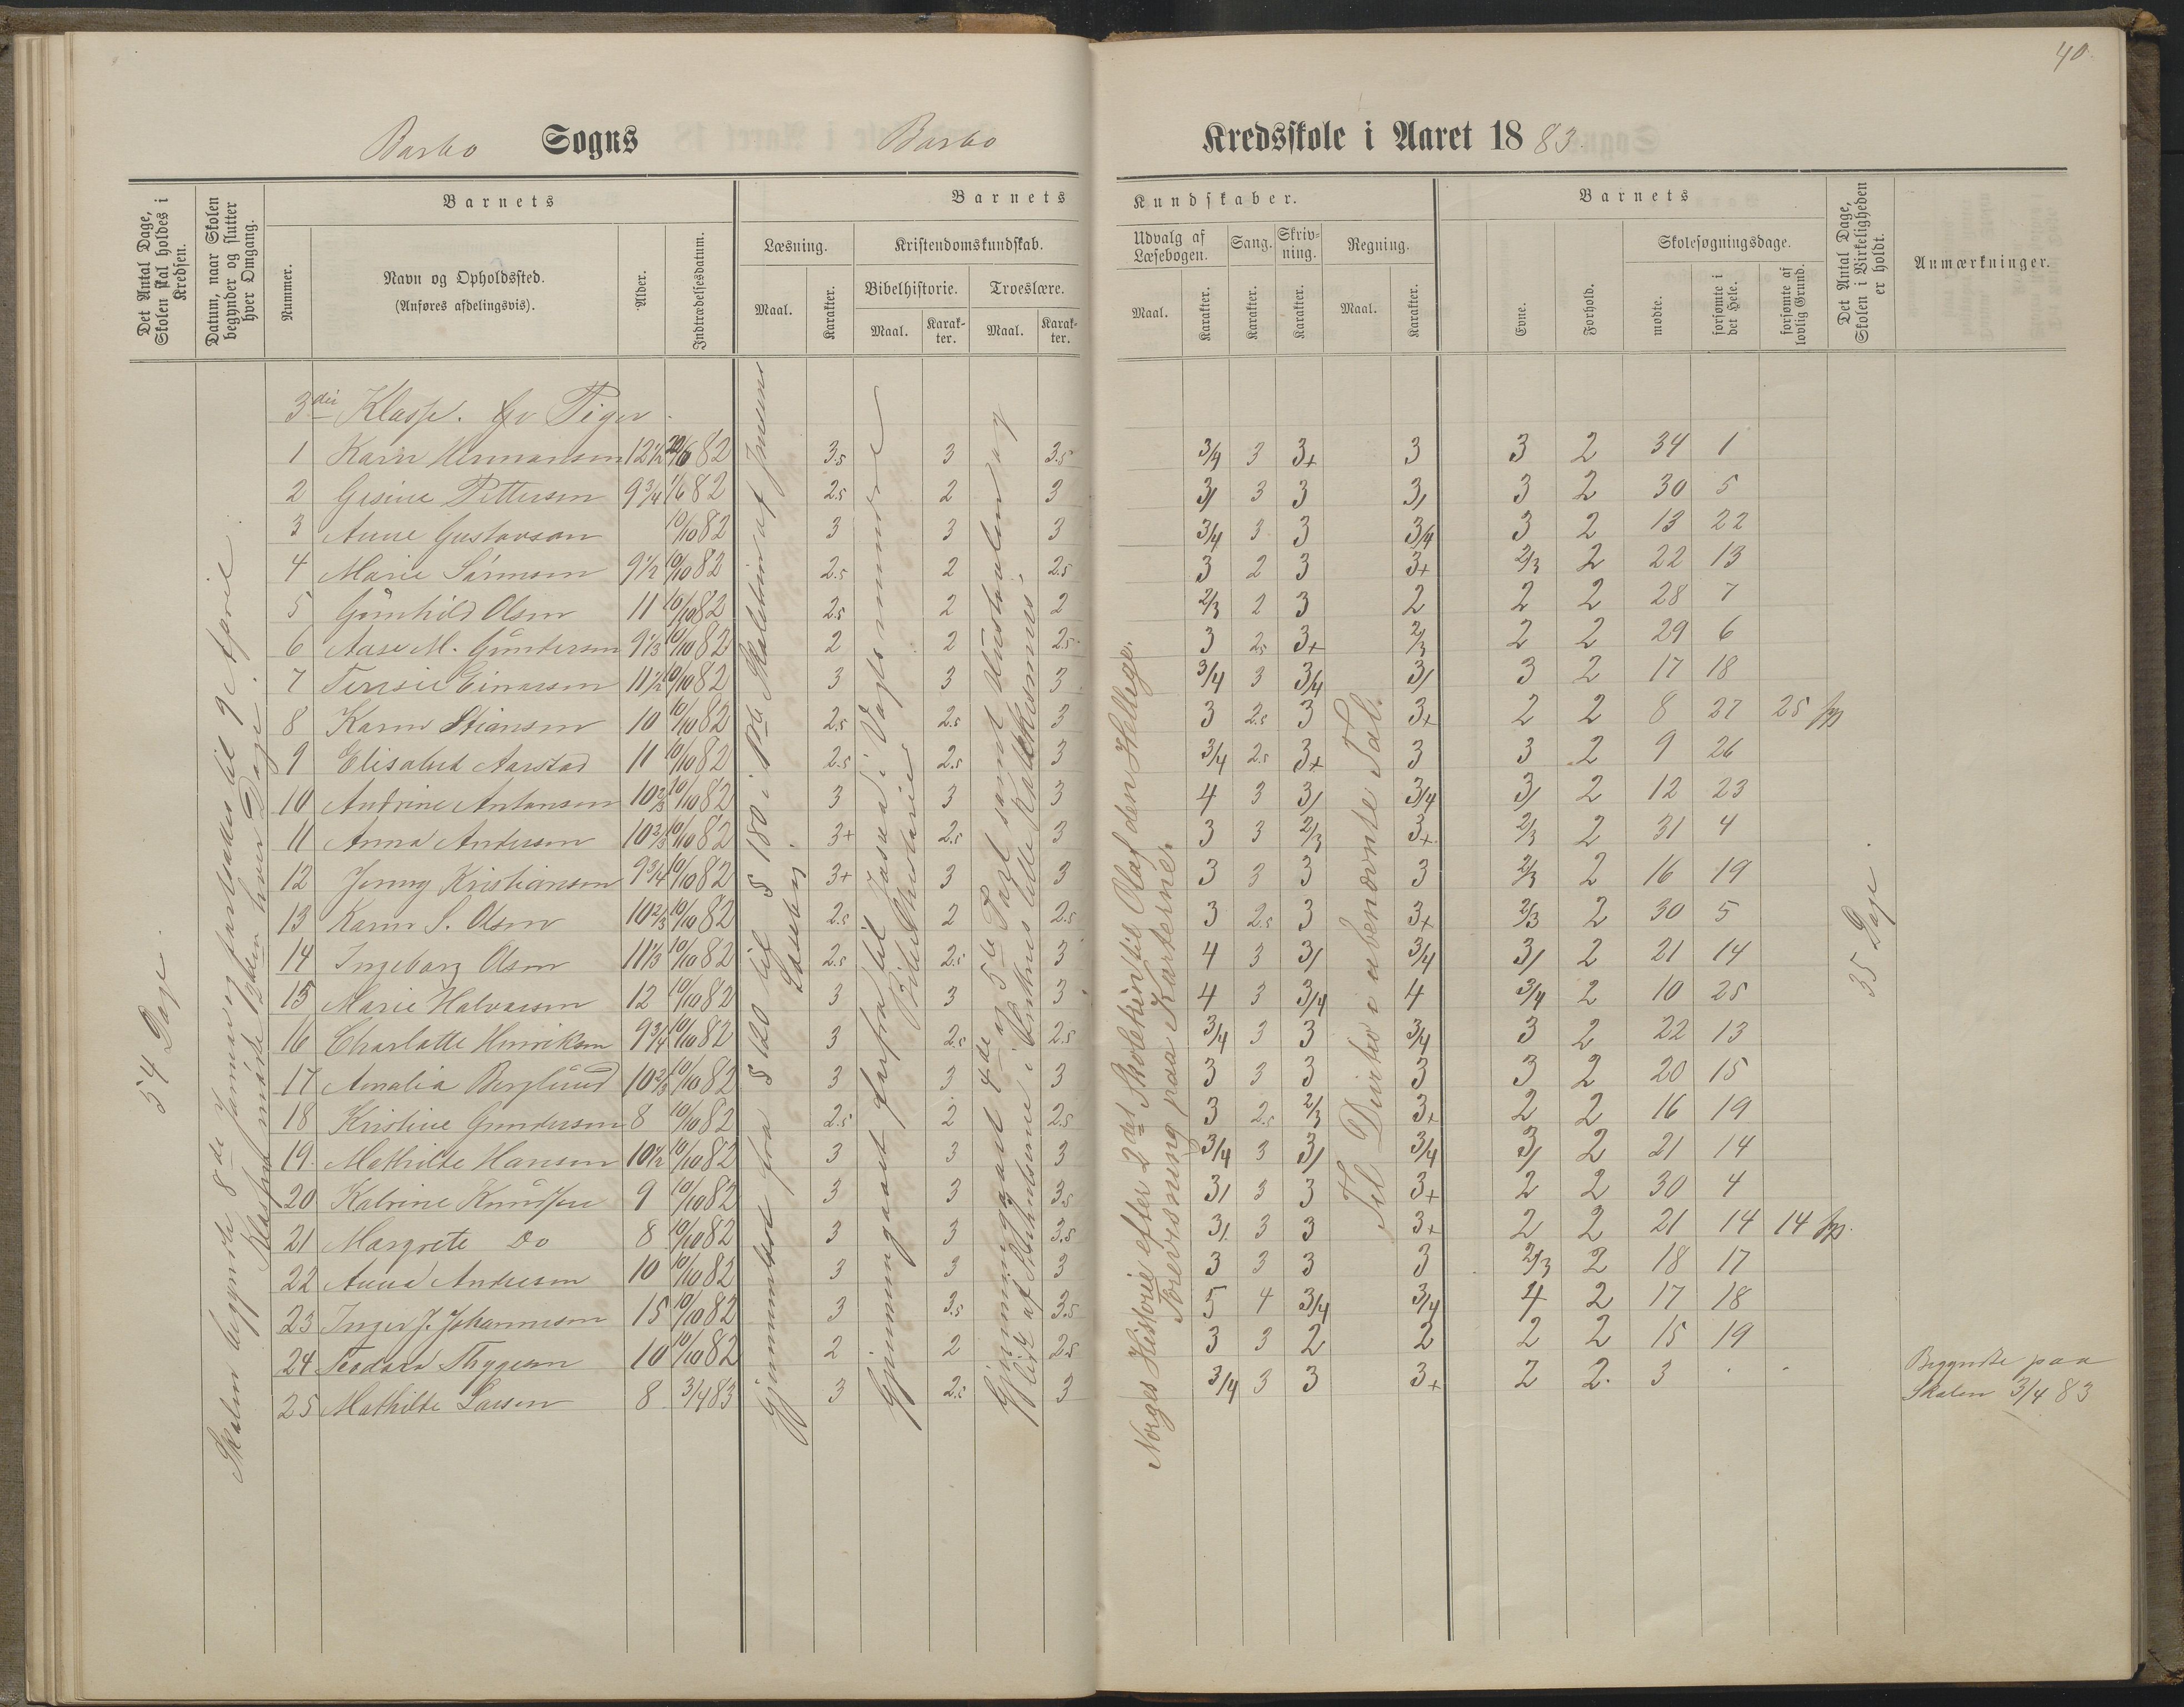 40.
Barbo Sogns Barbo Kredsskole i Aaret 1883.
Det Antal Dage, Skolen skal holdes i Kredsen.
Datum, naar Skolen begynder og slutter hver Omgang.
Barnets
Nummer.
Navn og Opholdssted.
(Anføres afdelingsvis).
Alder.
Indtrædelsesdatum.
Barnets Kundskaber.
Læsning.
Maal.
Karakter.
Kristendomskundskab.
Bibelhistorie.
Maal.
Karakter.
Troeslære.
Maal.
Karakter.
Udvalg af Læsebogen.
Maal.
Karakter.
Sang.
Karakter.
Skrivning.
Karakter.
Regning.
Maal.
Karakter.
Barnets
Evne.
Forhold.
Skolesøgningsdage.
mødte.
forsømte i det Hele.
forsømte af lovlig Grund.
Det Antal Dage, Skolen i Virkeligheden er holdt.
Anmærkninger.
54 Dage.
Skolen begyndte 8de Januar og fortsattes til 9de April.
Klassen mødte hver Dage.
3die Klasse. Piger
1 Karin Hermansen 12½ 82 3.5 3 3.5 3/4 3 3+ 3 3 2 34 1
2 Gesine Pettersen 9¾ 1/6 82 2.5 2 3 3/ 3 3 3/ 3 2 30 5
3 Anne Gustavson 10/10 82 3 3 3 3/4 3 3 3/4 3 2 13 22
4 Marie Sørensen 9½ 10/10 82 2.5 2 2.5 3 2 3 3+ 2/3 2 22 13
5 Gunhild Olsen 11 10/10 82 2.5 2 2 2/3 2 3 2 2 2 28 7
6 Aase M. Gundersen 9⅓ 10/10 82 2 2 2.5 3 2.5 3+ 2/3 2 2 29 6
7 Einarsen 11½ 10/10 82 3 3 3 3/4 3 3/4 3/ 3 2 17 18
8 Karen Stiansen 10 10/10 82 2.5 2.5 3 3 2.5 3 3+ 2 2 8 27 25
9 Elisabet Aarstad 11 10/10 82 2.5 2.5 3 3/4 2.5 3+ 3 3 2 9 26
10 Andrine Antonsen 10⅔ 10/10 82 3 3 3 4 3 3/ 3/4 3/ 2 12 23
11 Anna Andersen 10⅔ 10/10 82 3+ 2.5 3 3 3 2/3 3+ 2/3 2 31 4
12 Jenny Kristiansen 9¾ 10/10 82 3+ 3 3 3 3 3 3 2/3 2 16 19
13 Karen S. Olsen 10⅔ 10/10 82 2.5 2 2.5 3 2.5 3 3+ 2/3 2 30 5
14 Ingeborg Olsen 11⅓ 10/10 82 2.5 2.5 3 4 3 3/ 3/4 3/ 2 21 14
15 Marie Halvorsen 12 10/10 82 3 3 3 4 3 3/4 4 3/4 2 10 25
16 Charlotte Henriksen 9¾ 10/10 82 3 2.5 2.5 3/4 3 3 3/4 3 2 22 13
17 Amalia Berglund 10⅔ 10/10 82 3 3 3 3 3 3 3 3 2 20 15
18 Kristine Gundersen 8 10/10 82 2.5 2 2.5 3 2.5 2/3 3+ 2 2 16 19
19. Mathilde Hansen 10½ 10/10 82 3 3 3 3/4 3 3/ 3/4 3/ 2 21 14
20 Katrine Knudsen 9 10/10 82 3 3 3.5 3/ 3 3 3+ 2 2 30 4
21 Margrete Do 8 10/10 82 3 3 3.5 3/. 3 3 3+ 2 2 21 14 14
22 Anna Andersen 10 10/10 82 3 3 3 3 3 3 3 2/3 2 18 17
23 Inger J. Johannesen 15 10/10 82 3 3.5 3.5 5 4 3/4 3/4 4 2 17 18
24 Teodora Thygesen 10 10/10 82 2 2 2.5 3 3 2 2 2 2 15 19
25 Mathilde Larsen 8 3/4 83 3 2.5 3 3/4 3 3 3+ 2 2. 3 . .
Begyndte paa
Skolen 3/4 83
Gjennemlæst fra § 120 til § 180 i 1ste Skoletrin af Jensens
Læsebog.
Gjennemgaaet forfra til Josva i Vogts mindre
Bibelhistorie
Gjennemgaaet 4de og 5te Part samt Hustavlen og
af i Luthers lille Katekismus.
Norges Historie efter 2det Skoletrin til Olaf den Hellige.
Forevisning paa Karterne.
Til Division i ubenævnte Tal.
35 Dage.